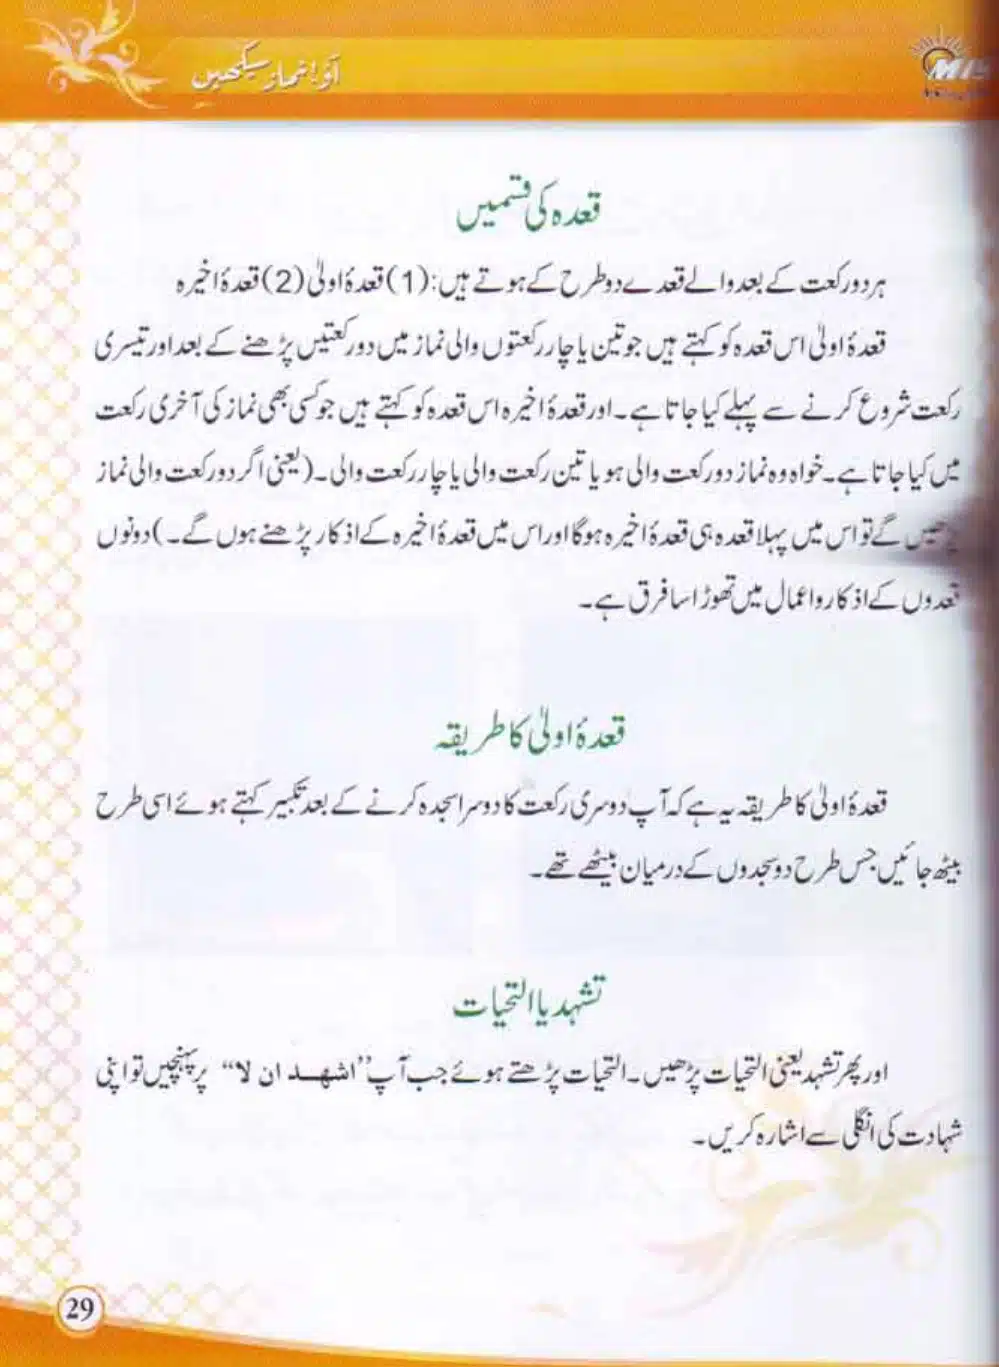 آؤ! نماز سیکھیں
قعدہ کی قسمیں
ہر دو رکعت کے بعد والے قعدے دو طرح کے ہوتے ہیں: (1) قعدۂ اولیٰ (2) قعدۂ اخیرہ
قعدۂ اولیٰ اس قعدہ کو کہتے ہیں جو تین یا چار رکعتوں والی نماز میں دو رکعتیں پڑھنے کے بعد اور تیسری
رکعت شروع کرنے سے پہلے کیا جاتا ہے۔ اور قعدۂ اخیرہ اس قعدہ کو کہتے ہیں جو کسی بھی نماز کی آخری رکعت
میں کیا جاتا ہے۔ خواہ وہ نماز دو رکعت والی ہو یا تین رکعت والی یا چار رکعت والی۔ (یعنی اگر دو رکعت والی نماز
گے تو اس میں پہلا قعدہ ہی قعدۂ اخیرہ ہوگا اور اس میں قعدۂ اخیرہ کے اذکار پڑھنے ہوں گے۔) دونوں
قعدوں کے اذکار و اعمال میں تھوڑا سا فرق ہے۔
قعدۂ اولیٰ کا طریقہ
قعدۂ اولیٰ کا طریقہ یہ ہے کہ آپ دوسری رکعت کا دوسرا سجدہ کرنے کے بعد تکبیر کہتے ہوئے اسی طرح
بیٹھ جائیں جس طرح دو سجدوں کے درمیان بیٹھے تھے۔
تشہد یا التحیات
اور پھر تشہد یعنی التحیات پڑھیں۔ التحیات پڑھتے ہوئے جب آپ "اشھد ان لا" پر پہنچیں تو اپنی
شہادت کی انگلی سے اشارہ کریں۔
29